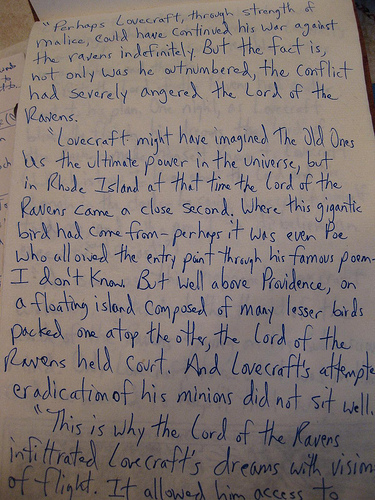 "Perhaps Lovecraft, through strength of
malice, could have continued his war against
the ravens indefinitely. But the fact is,
not only was he outnumbered, the conflict
had severely angered the Lord of the
Ravens.
"Lovecraft might have imagined The Old Ones
as the ultimate power in the universe, but
in Rhode Island at that time the Lord of the
Ravens came a close second. Where this gigantic
bird had come from - perhaps it was even Poe
who allowed the entry point through his famous poem-
I don't know. But well above Providence, on
a floating island composed of many lesser birds
packed one atop the other, the Lord of the
Ravens held court. And Lovecraft's attempte
eradication of his minions did not sit well.
"This is why the Lord of the Ravens
infiltrated Lovecraft's dreams with vision
of flight. It allowed him access to